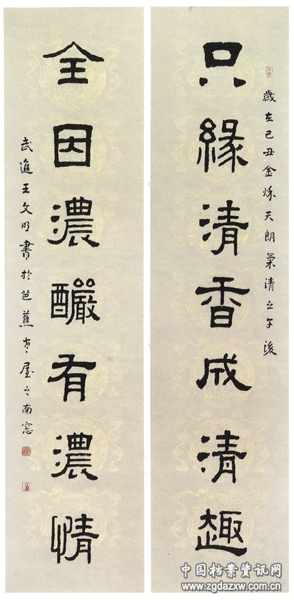 只緣清香成清趣
歲在己丑金秌天朗氣清之午後
全因濃釅有濃情
武進王文明書於芭蕉書屋之南窓
中国档案资讯网
www.zgdazxw.com.cn